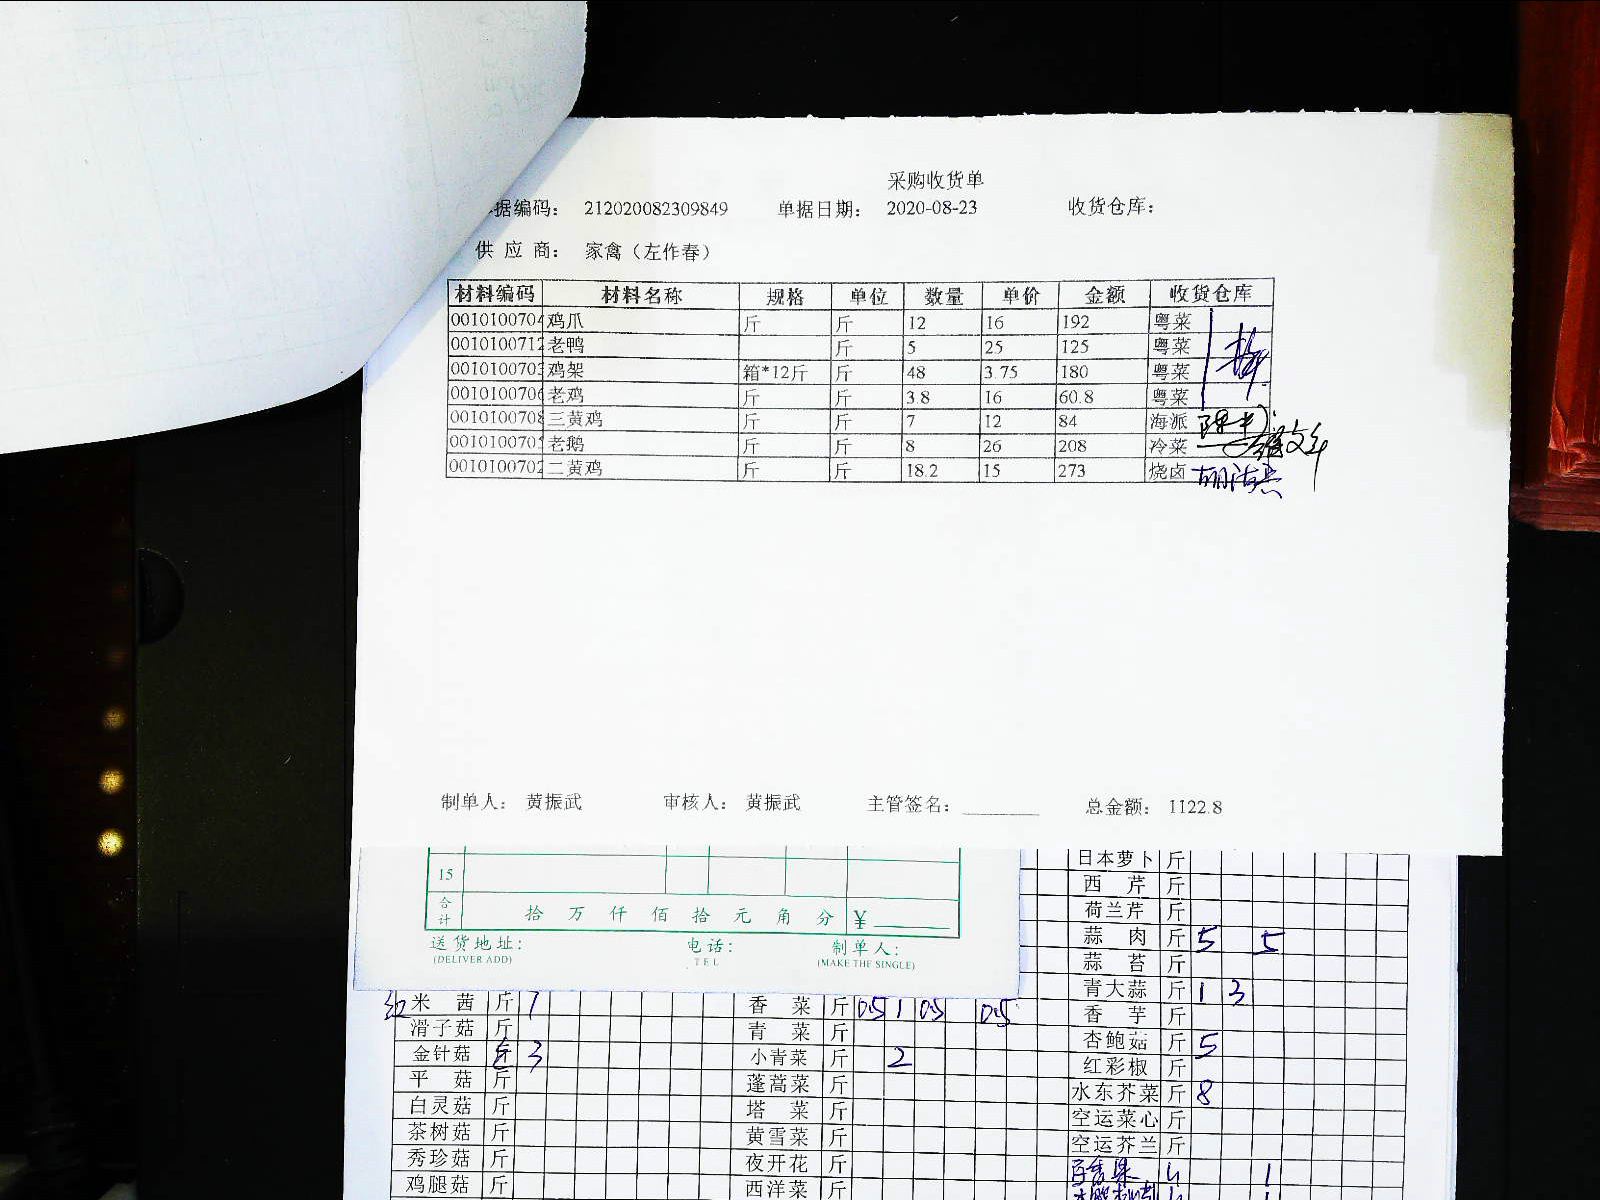 采购收货单
据编码： 212020082309849 单据日期： 2020-08-23 收货仓库：
供 应 商： 家禽（左作春）
材料编码 材料名称 规格 单位 数量 单价 金额 收货仓库
0010100704 鸡爪 斤 斤 12 16 192 粤菜
0010100712 老鸭 斤 5 25 125 粤菜
0010100703 鸡架 箱*12斤 斤 48 3.75 180 粤菜
0010100706 老鸡 斤 斤 3.8 16 60.8 粤菜
0010100708 三黄鸡 斤 斤 7 12 84 海派
001010070 老鹅 斤 斤 8 26 208 冷菜
0010100702 二黄鸡 斤 斤 18.2 15 273 烧卤
制单人： 黄振武 审核人： 黄振武 主管签名： 总金额： 1122.8
15
合计 拾 万 仟 佰 拾 元 角 分 ¥
送货地址： 电话： 制单人：
(DELIVER ADD) TEL (MAKE THE SINGLE)
日本萝卜 斤
西 芹 斤
荷兰芹 斤
蒜 肉 斤 5 5
蒜 苔 斤
青大蒜 斤 1 3
香 芋 斤
杏鲍菇 斤 5
红彩椒 斤
水东芥菜 斤 8
空运菜心 斤
空运芥兰 斤
红 米 茜 斤 1 香 菜 斤 0.5 1 0.5 0.5
滑子菇 斤 青 菜 斤
金针菇 斤 3 小青菜 斤 2
平 菇 斤 蓬蒿菜 斤
白灵菇 斤 塔 菜 斤
茶树菇 斤 黄雪菜 斤
秀珍菇 斤 夜开花 斤
鸡腿菇 斤 西洋菜 斤